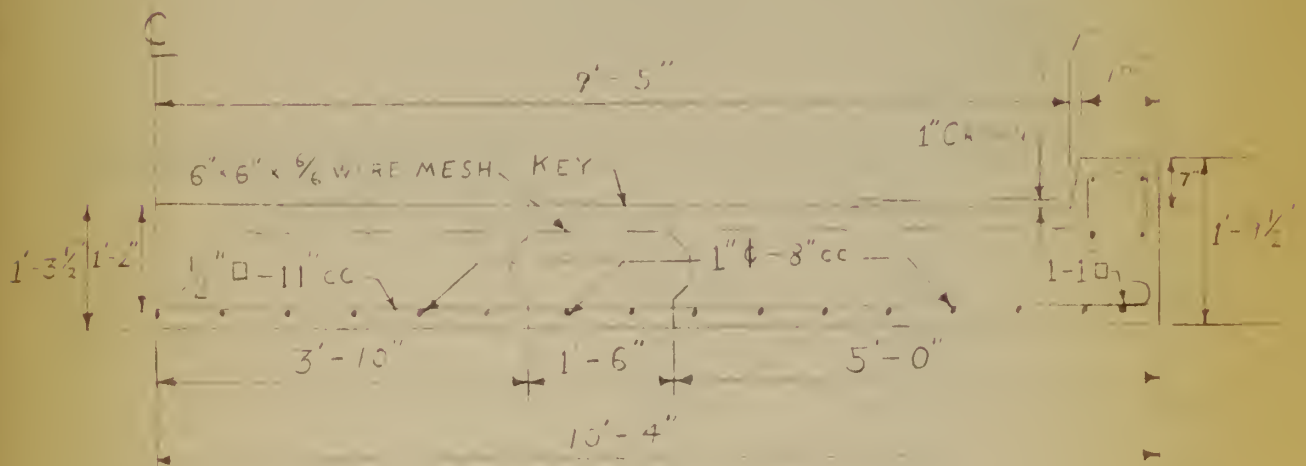 C
9'-5"
1"
6" x 6" x 6/6 WIRE MESH KEY
7"
1'-3 1/2"
1'-2"
1/2" □ - 11" cc
1" ¢ - 8" cc
1-1 □
3'-10"
1'-6"
5'-0"
10'-4"